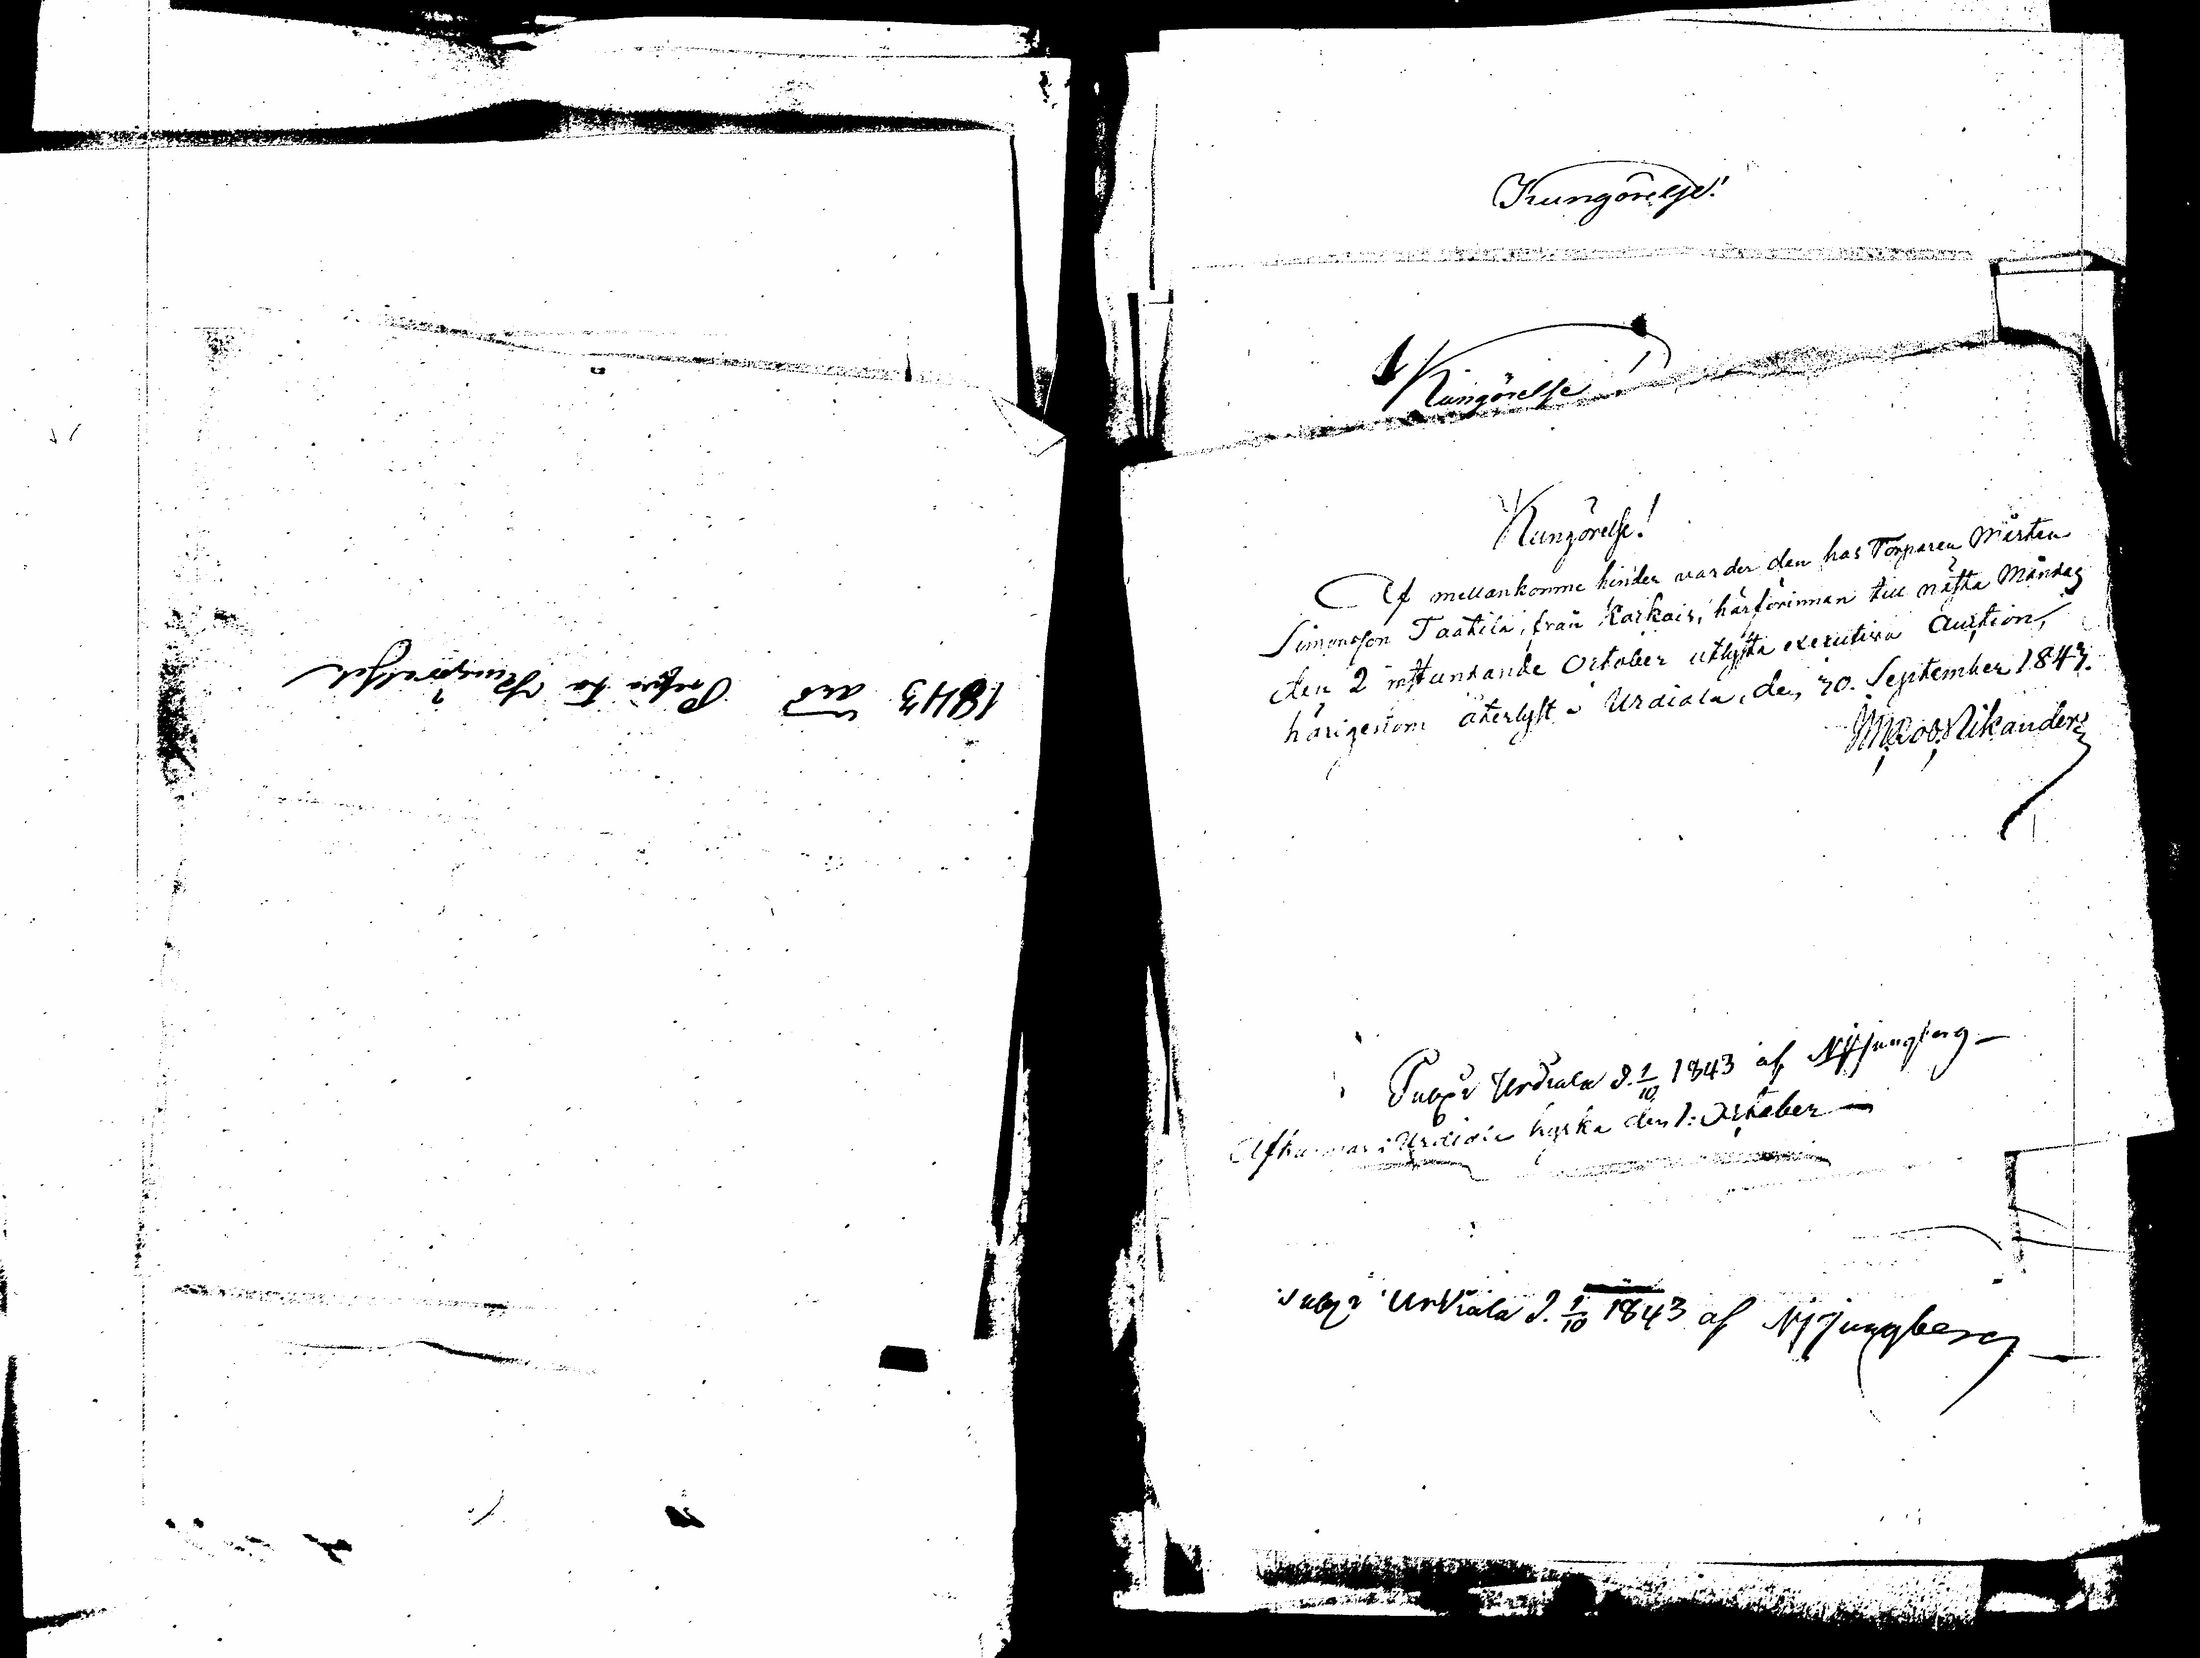 1843 års
Kungörelse!
Kungörelse!
Kungörelse!
Af mellankomne hinder varder den hos Torparen Mårten
Simonsson Taatila, från Karkais, härförinnan till nästa Måndag
den 2 instundande October utlysta executiva Auction,
härigenom återlyst i Urdiala, den 30. September 1843.
Nikander
Publ: i Urdiala d. 1/10 1843 af Ljungberg
Urdiala kyrka den 1: October
Publ: i Urdiala d. 1/10 1843 af Ljungberg